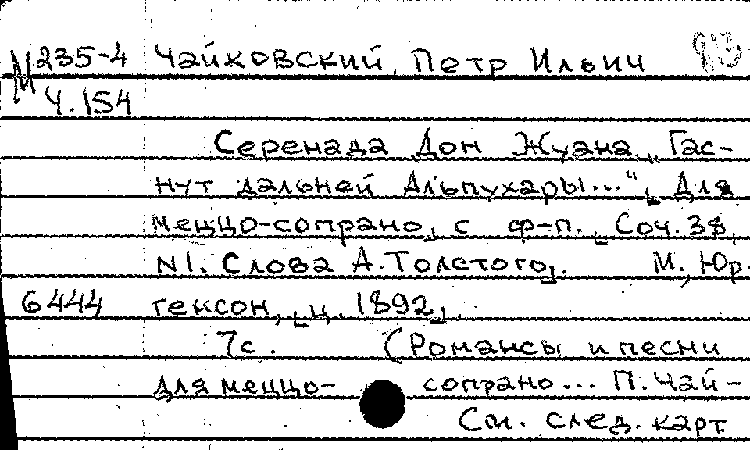 М 235-4 Чайковский, Петр Ильич
Ч.154
Серенада Дон Жуана „Гас-
нут дальней Альпухары...“, Для
меццо-сопрано, с ф-п. Соч. 38,
N1. Слова А. Толстого. М., Юр-
6444 генсон, ц. 1892.
7с. (Романсы и песни
для меццо- сопрано... П. Чай-
См. след. карт